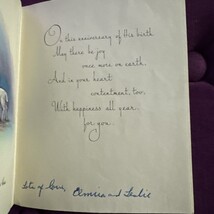 On this anniversary of thy birth
May there be joy
once more on earth.
And in your heart
contentment, too,
With happiness all year
for you.
Lots of love, Elmira and Leslie